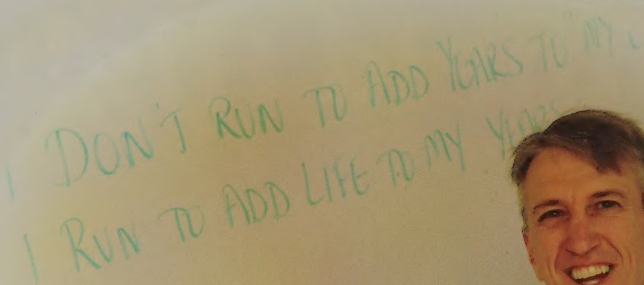 I DON'T RUN TO ADD YEARS TO MY
I RUN TO ADD LIFE TO MY YEARS